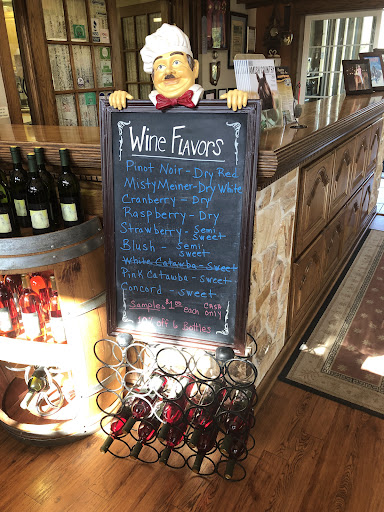 Wine Flavors
Pinot Noir - Dry Red
Misty Meiner - Dry White
Cranberry - Dry
Raspberry - Dry
Strawberry - Semi sweet
Blush - Semi sweet
White Catawba - Sweet
Pink Catawba - Sweet
Concord - sweet
Samples $1.00 each CASH ONLY
10% off 6 Bottles